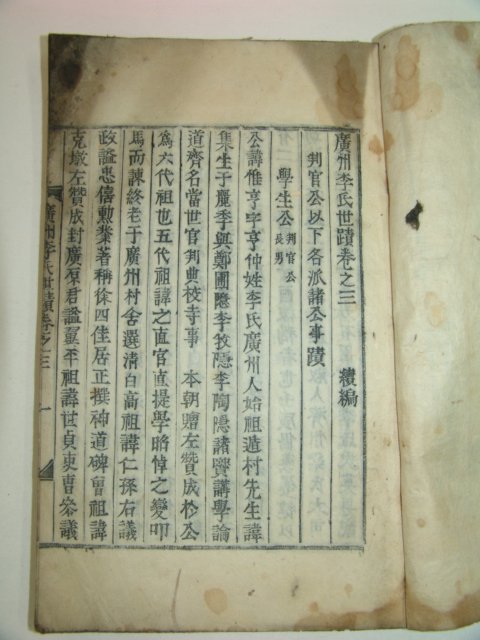 廣州李氏世蹟卷之三 續編
判官公以下各派諸公事蹟
學生公 判官公長男
公諱惟亨字亨仲姓李氏廣州人始祖遁村先生諱
集生于麗季與鄭圃隱李牧隱李陶隱諸賢講學論
道齊名當世官判典校寺事 本朝贈左贊成於公
爲六代祖也五代祖諱之直官直提學昭悼之變叩
馬而諫終老于廣州村舍選清白高祖諱仁孫右議
政謚忠僖勳業著稱徐四佳居正撰神道碑曾祖諱
克墩左贊成封廣原君謚翼平祖諱世貞吏曹參議
廣州李氏世蹟卷之三 一